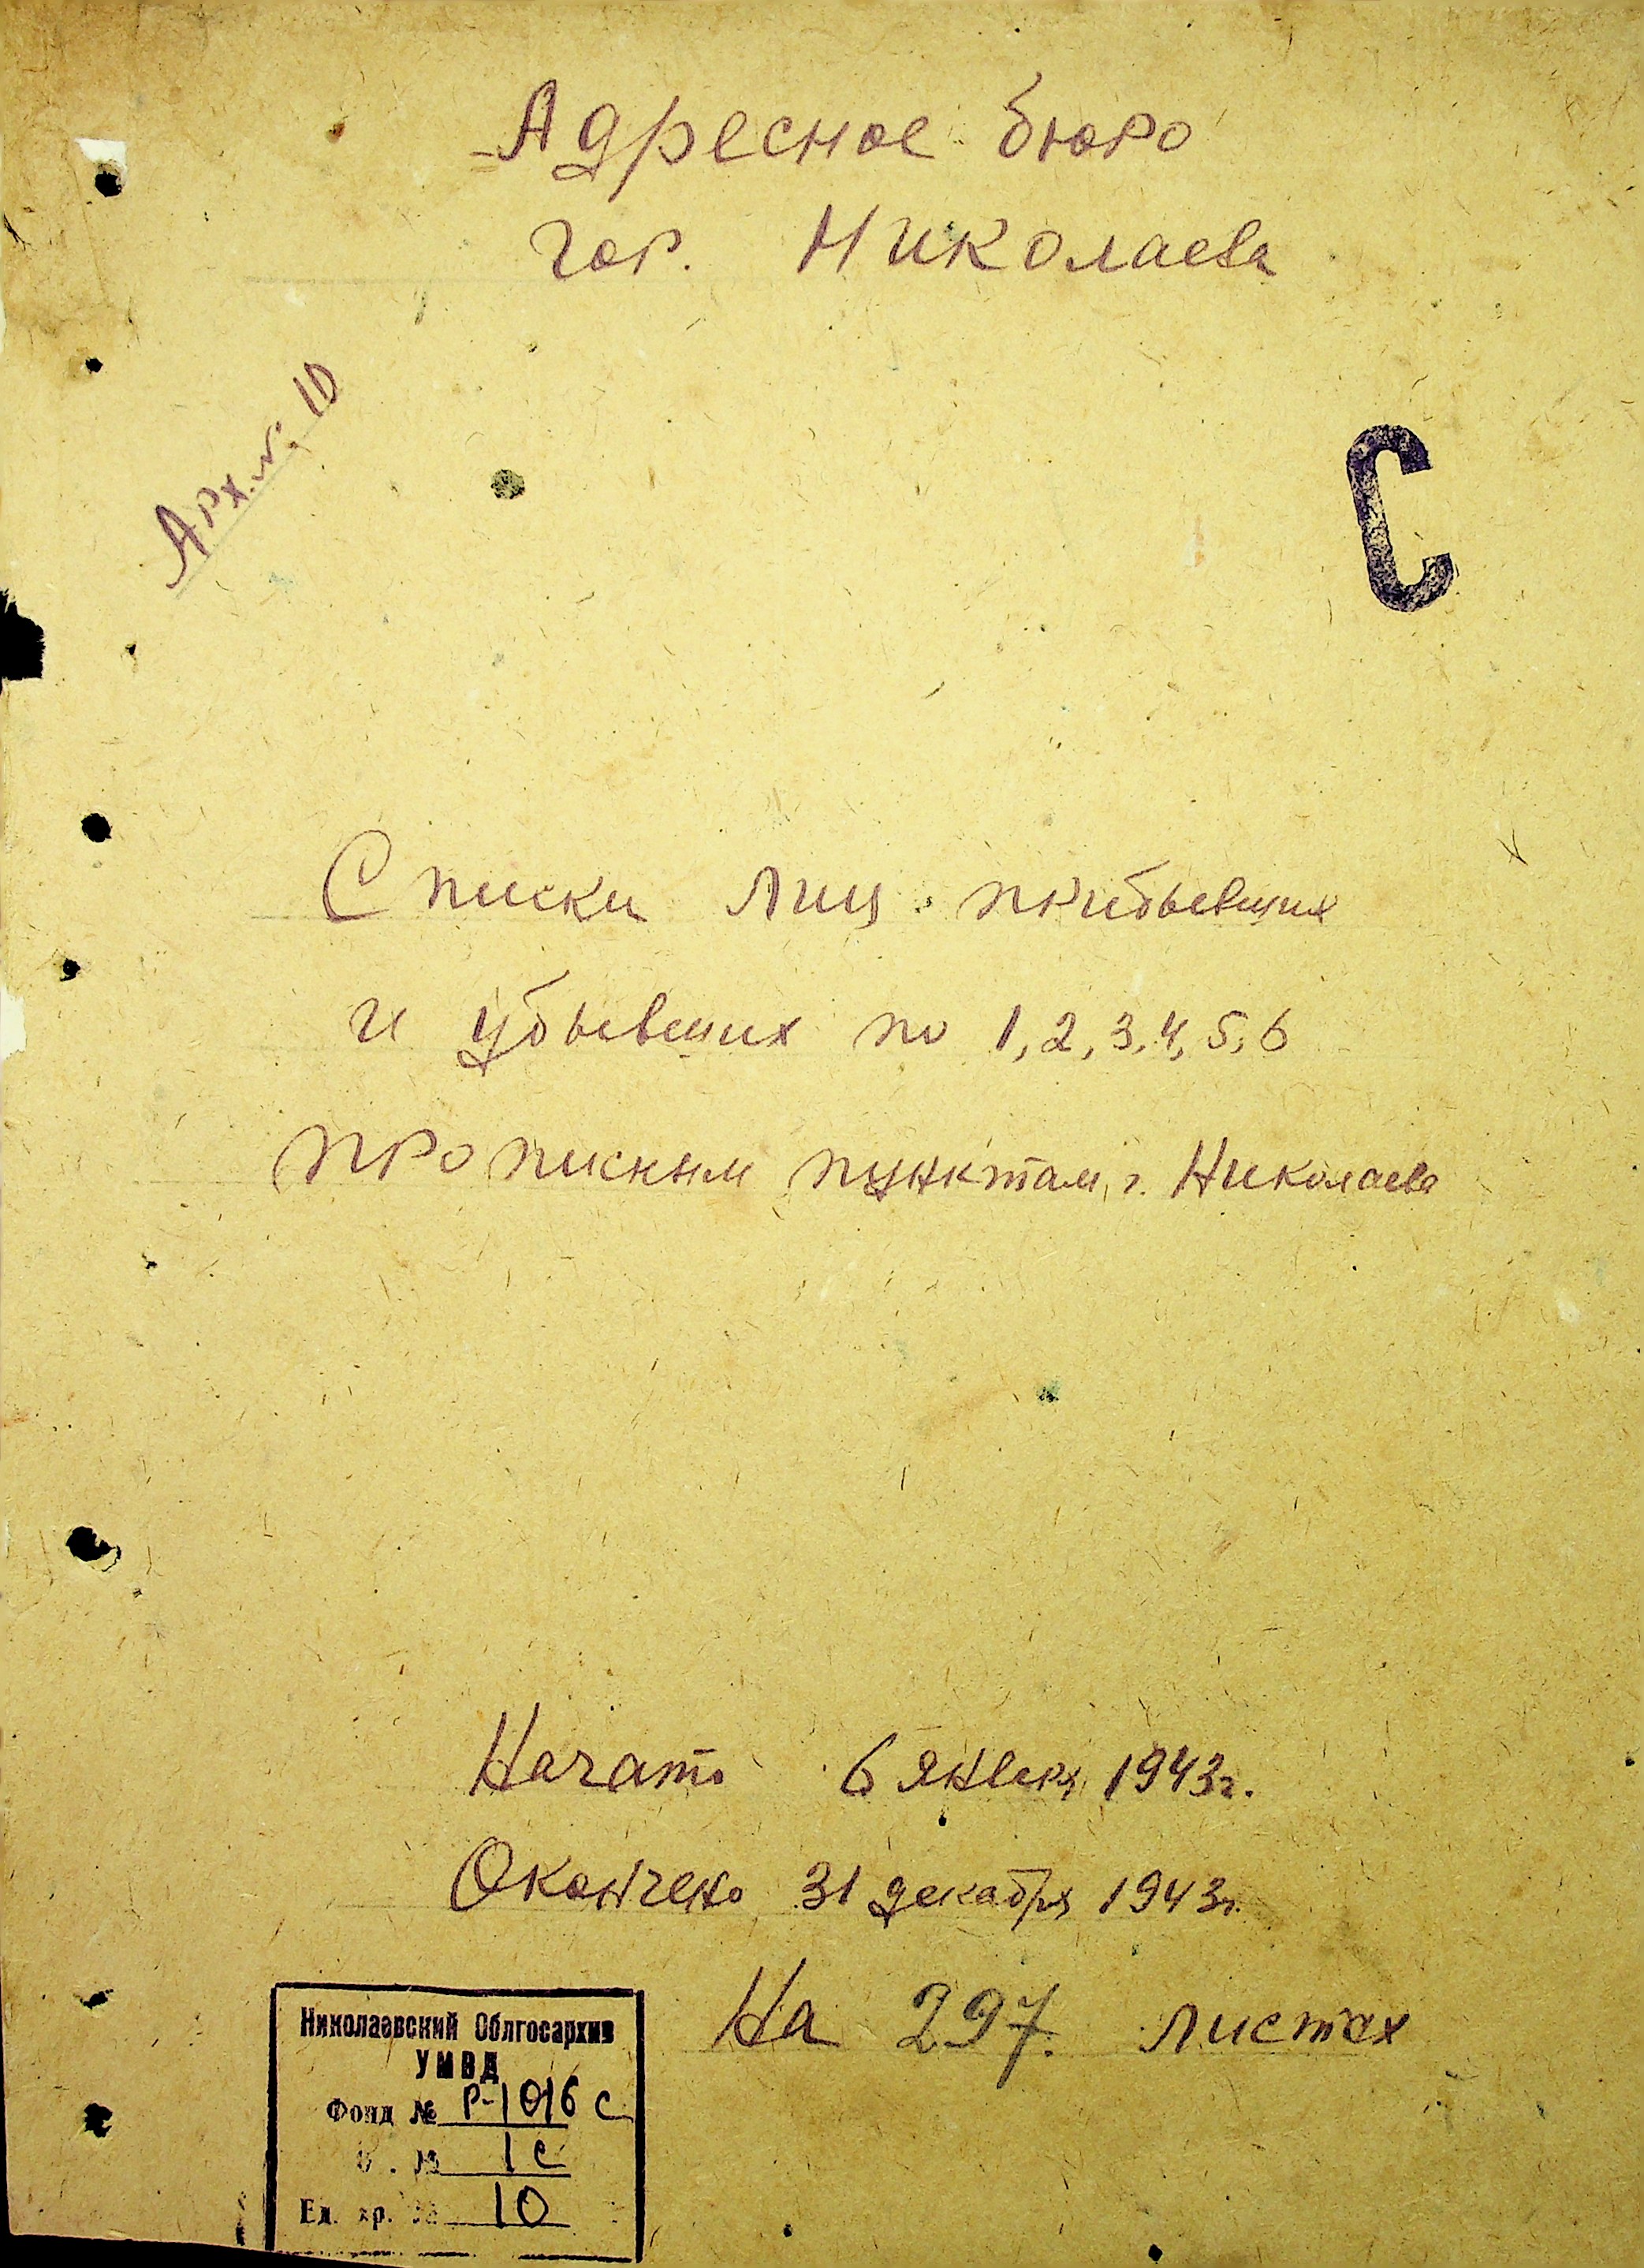 Адресное бюро
гор. Николаева
Арх. №: 10
С
Списки лиц прибывших
и убывших по 1, 2, 3, 4, 5, 6
прописным пунктам г. Николаева
Начато 6 января 1943г.
Окончено 31 декабря 1943г.
На 297 листах
Николаевский Облгосархив
УМВД
Фонд № Р-1016 с
О . № 1с
Ед. хр. № 10